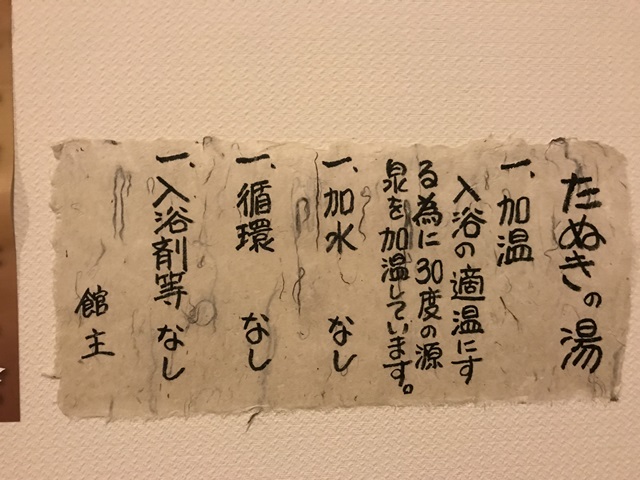 たぬきの湯
一、加温
入浴の適温にす
る為に30度の源
泉を加温しています。
一、加水 なし
一、循環 なし
一、入浴剤等 なし
館主